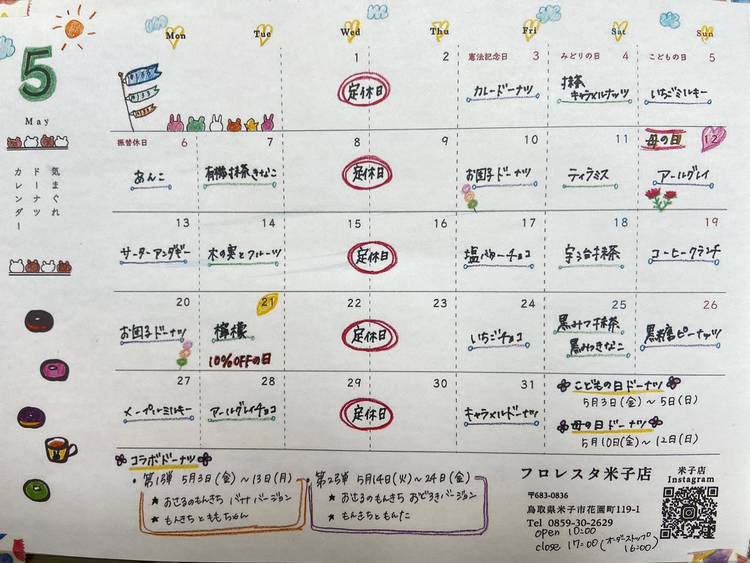 5
May
気まぐれ
ドーナツ
カレンダー
Mon Tue Wed Thu Fri Sat Sun
1 2 憲法記念日 3 みどりの日 4 こどもの日 5
定休日 カレードーナツ 抹茶 いちごミルキー
キャラメルナッツ
振替休日 6 7 8 9 10 11 母の日 12
あんこ 有機抹茶きなこ 定休日 お団子ドーナツ ティラミス アールグレイ
13 14 15 16 17 18 19
サーターアンダギー 木の実とフルーツ 定休日 塩バターチョコ 宇治抹茶 コーヒークランチ
20 21 22 23 24 25 26
お団子ドーナツ 檸檬 定休日 いちごチョコ 黒みつ抹茶 黒糖ピーナッツ
10%OFFの日 黒みつきなこ
27 28 29 30 31
メープルミルキー アールグレイチョコ 定休日 キャラメルドーナツ
こどもの日ドーナツ
5月3日(金)～5日(日)
母の日ドーナツ
5月10日(金)～12日(日)
コラボドーナツ
・第1弾 5月3日(金)～13日(月)
★ おさるのもんきち バナナバージョン
★ もんきちとももちゃん
・第2弾 5月14日(火)～24日(金)
★ おさるのもんきち おどろきバージョン
★ もんきちともんた
フロレスタ米子店
〒683-0836
鳥取県米子市花園町119-1
Tel 0859-30-2629
open 10:00
close 17:00(オーダーストップ
16:00)
米子店
Instagram